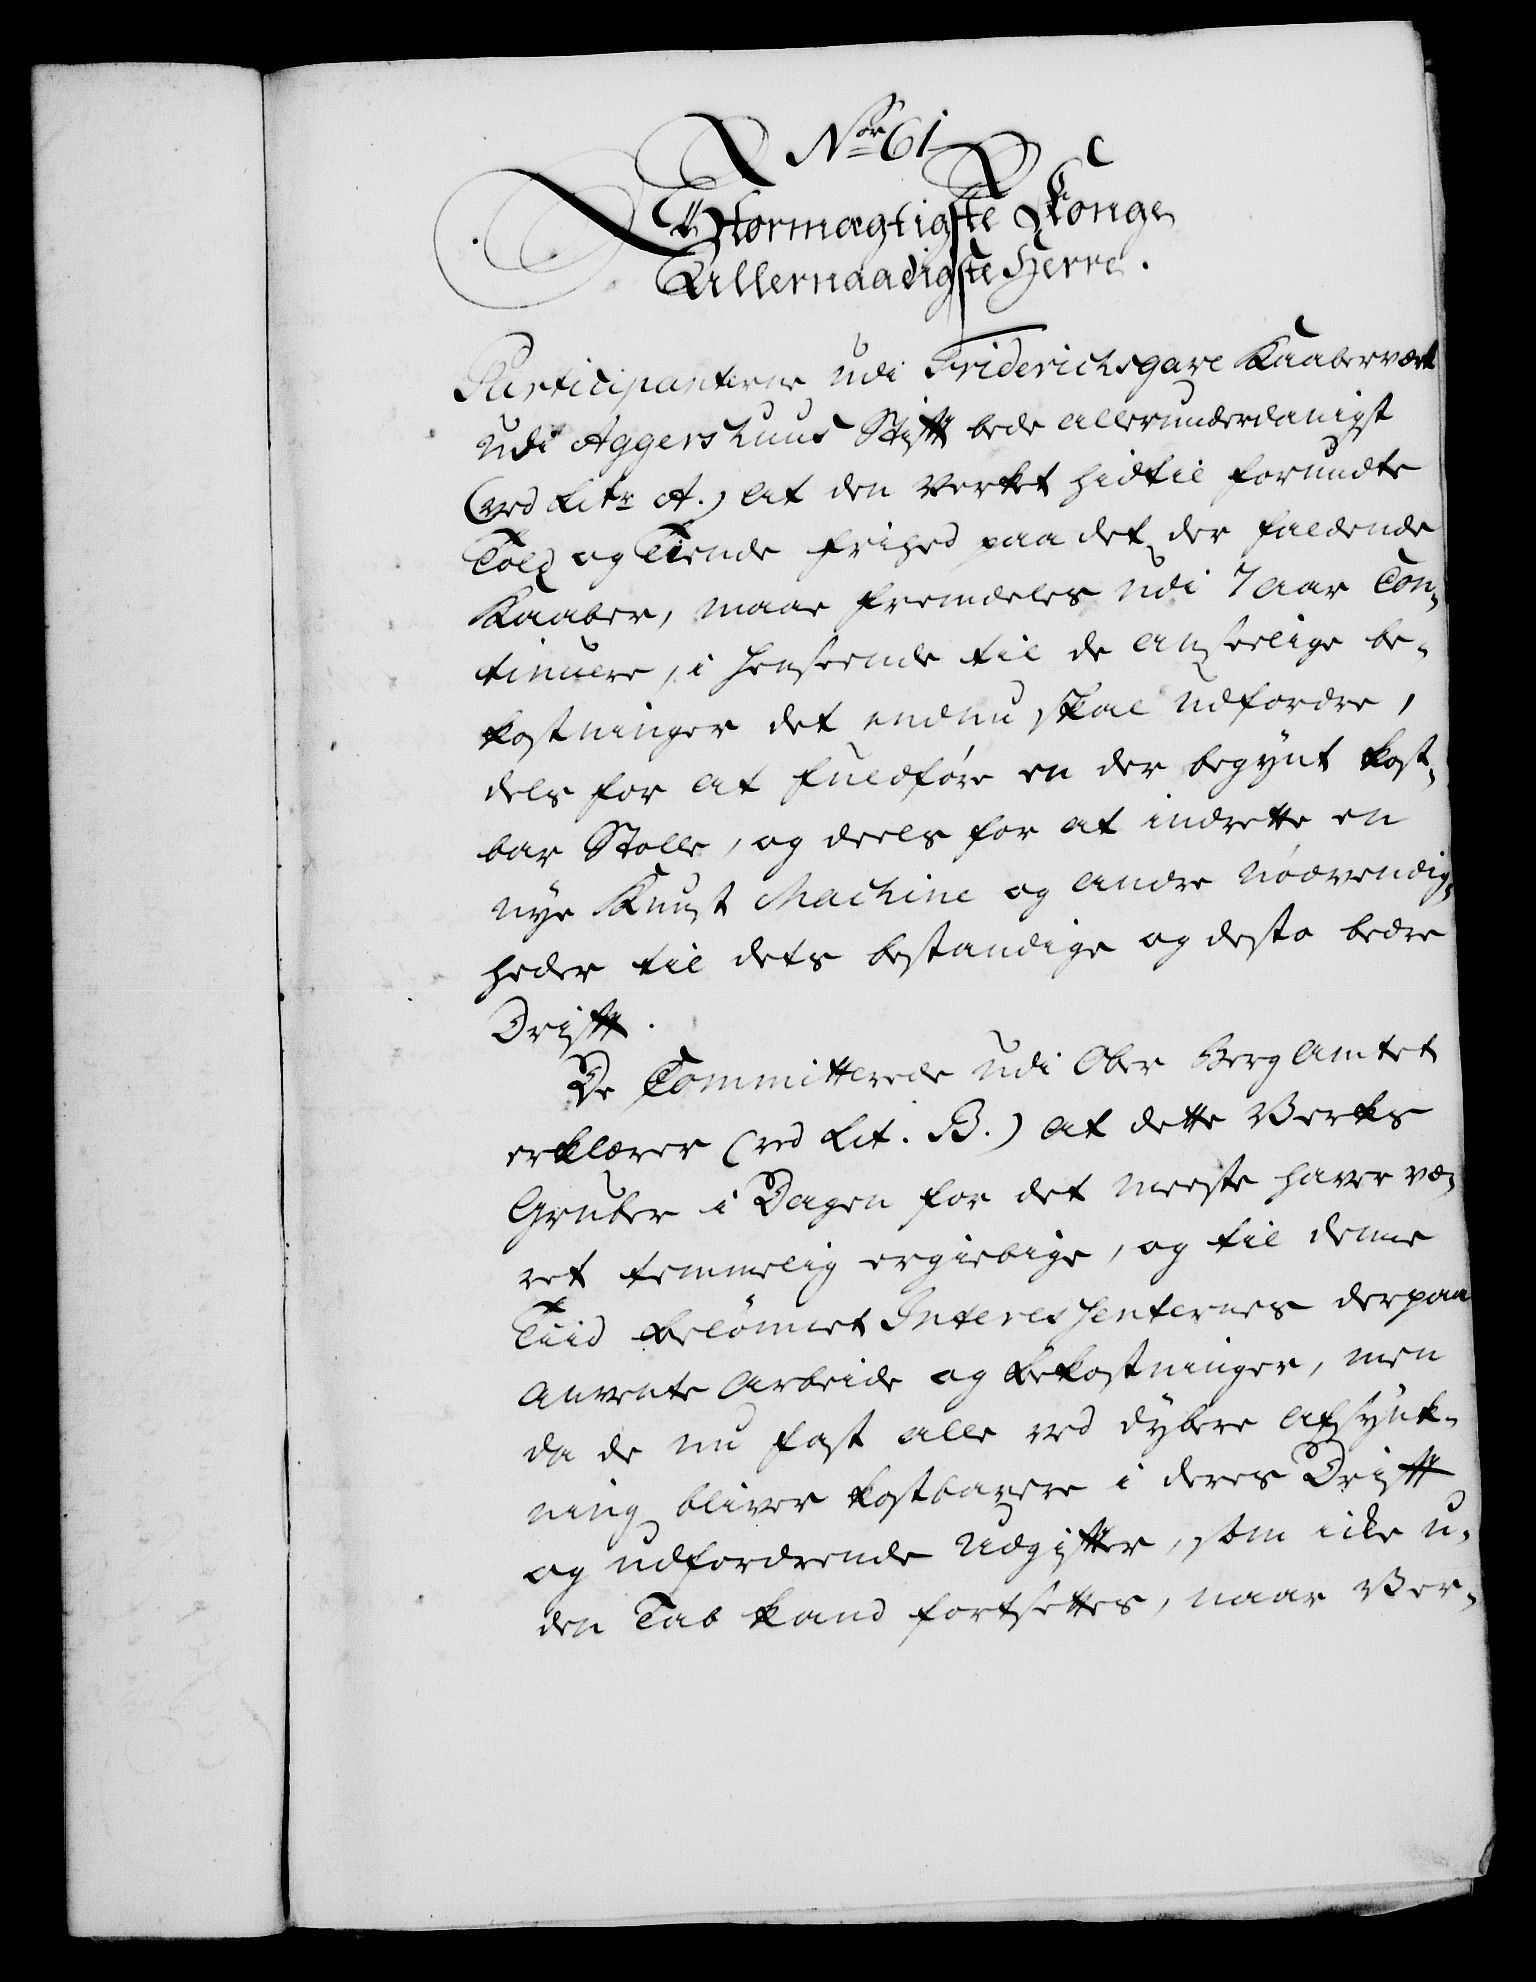 Nor 61
Stormægtigste Konge
Allernaadigste Herre.
Participanterne udi Friderichsgave Kaabervært
udi Aggershuus Stift bede allerunderdanigst
(ved Litr A.) at den Verket hidtil forundte
Told og Tiende frihed paa det der faldende
Kaaber, maae fremdeles udi 7 aar Con-
tinuere, i henseende til de anseelige be-
kostninger det endnu skal udfordre,
dels for at fuldføre en der begynt kost-
bar Stolle, og deels for at indrette en
nye Kunst Machine og andre nødvendig-
heder til dets bestandige og desto bedre
Drift.
De Committerede udi Ober Berg Amtet
erklærer (ved Lit. B.) at dette Verks
Gruber i Dagen for det meeste haver væ-
ret temmelig ergiebige, og til denne
Tiid belønnet Interessenternes derpaa
anvente Arbeide og bekostninger, men
da de nu fast alle ved dybere afsynk-
ning bliver kostbarere i deres Drift
og udfordrende Udgifter, som icke u-
den Tab kand fortsettes, naar Ver-